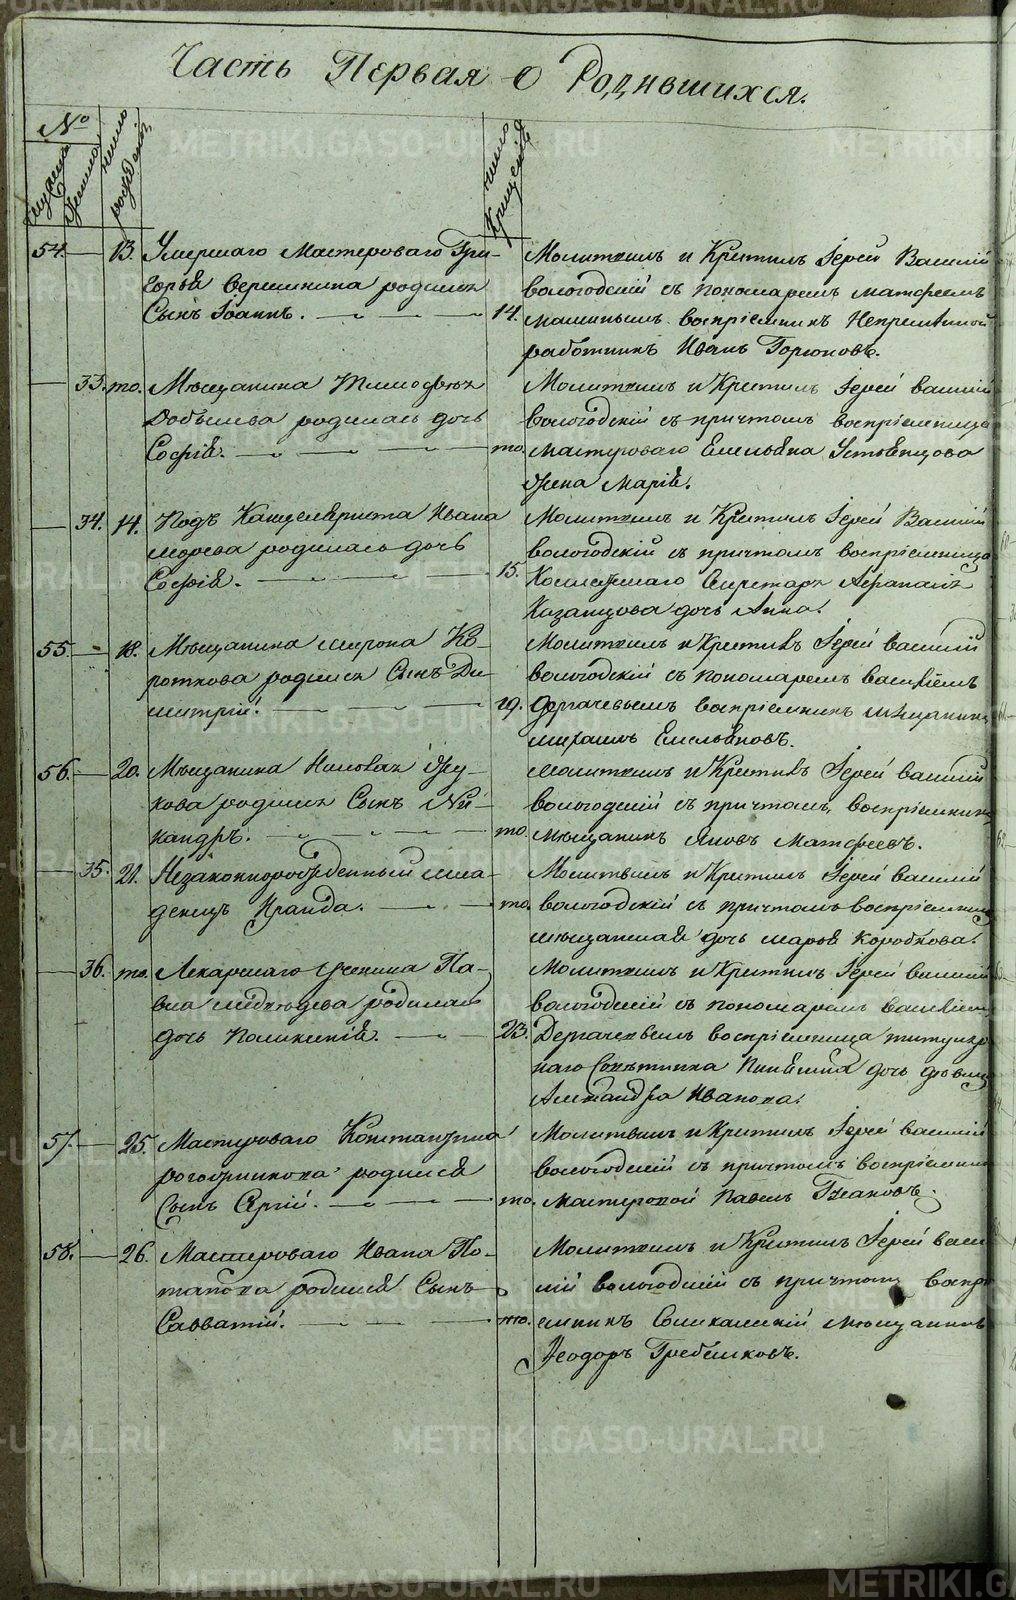 Часть Первая о Родившихся.
№
мужеска
женска
число рождения
число крещения
54. — 13. Умершаго Мастероваго Гри-
горья Вершинина родился
Сынъ Іоаннъ. 14.
Молитвилъ и Крестилъ Іерей Василій
вологодскій съ пономаремъ матфеемъ
воспріемникъ Непременной
работникъ Иванъ Горюновъ.
— 33. то. Мѣщанина Тимофея
родилась дочь
Софія. то.
Молитвилъ и Крестилъ Іерей василій
вологодскій съ причтомъ воспріемница
Мастероваго Емельяна Устьянцова
жена Марія.
— 34. 14. Подъ Канцеляриста Ивана
родилась дочь
Софія. 15.
Молитвилъ и Крестилъ Іерей Василій
вологодскій съ причтомъ воспріемница
Коллежскаго Секретаря Афанасія
Казанцова дочь Анна.
55. — 18. Мѣщанина мирона Ко-
роткова родился Сынъ Ди-
митрій. 19.
Молитвилъ и Крестилъ Іерей василій
вологодскій съ пономаремъ василіемъ
Дергачевымъ воспріемникъ мѣщанинъ
михаилъ Емельяновъ.
56. — 20. Мѣщанина Жу-
кова родился Сынъ Ни-
кандръ. то.
Молитвилъ и Крестилъ Іерей василій
вологодскій съ причтомъ, воспріемникъ
мѣщанинъ Яковъ Матфеевъ.
— 35. 21. Незаконнорожденный мла-
денецъ Ираида. то.
Молитвилъ и Крестилъ Іерей василій
вологодскій съ причтомъ воспріемница
мѣщанская дочь марья Коробкова.
— 36. то. Лекарскаго ученика Па-
вла медведева родилась
дочь Поликсенія. 23.
Молитвилъ и Крестилъ Іерей василій
вологодскій съ пономаремъ василіемъ
Дергачевымъ воспріемница титуляр
наго Совѣтника дочь девица
Александра Иванова.
57. — 25. Мастероваго Константина
рогожникова родился
Сынъ Сергій. то.
Молитвилъ и Крестилъ Іерей василій
вологодскій съ причтомъ воспріемникъ
мастеровой Павелъ
58. — 26. Мастероваго Ивана По-
тапова родился Сынъ
Савватій. то.
Молитвилъ и Крестилъ Іерей васи
лій вологодскій съ причтомъ воспрі
емникъ Соликамскій мѣщанинъ
Феодоръ Гребешковъ.
METRIKI.GASO-URAL.RU